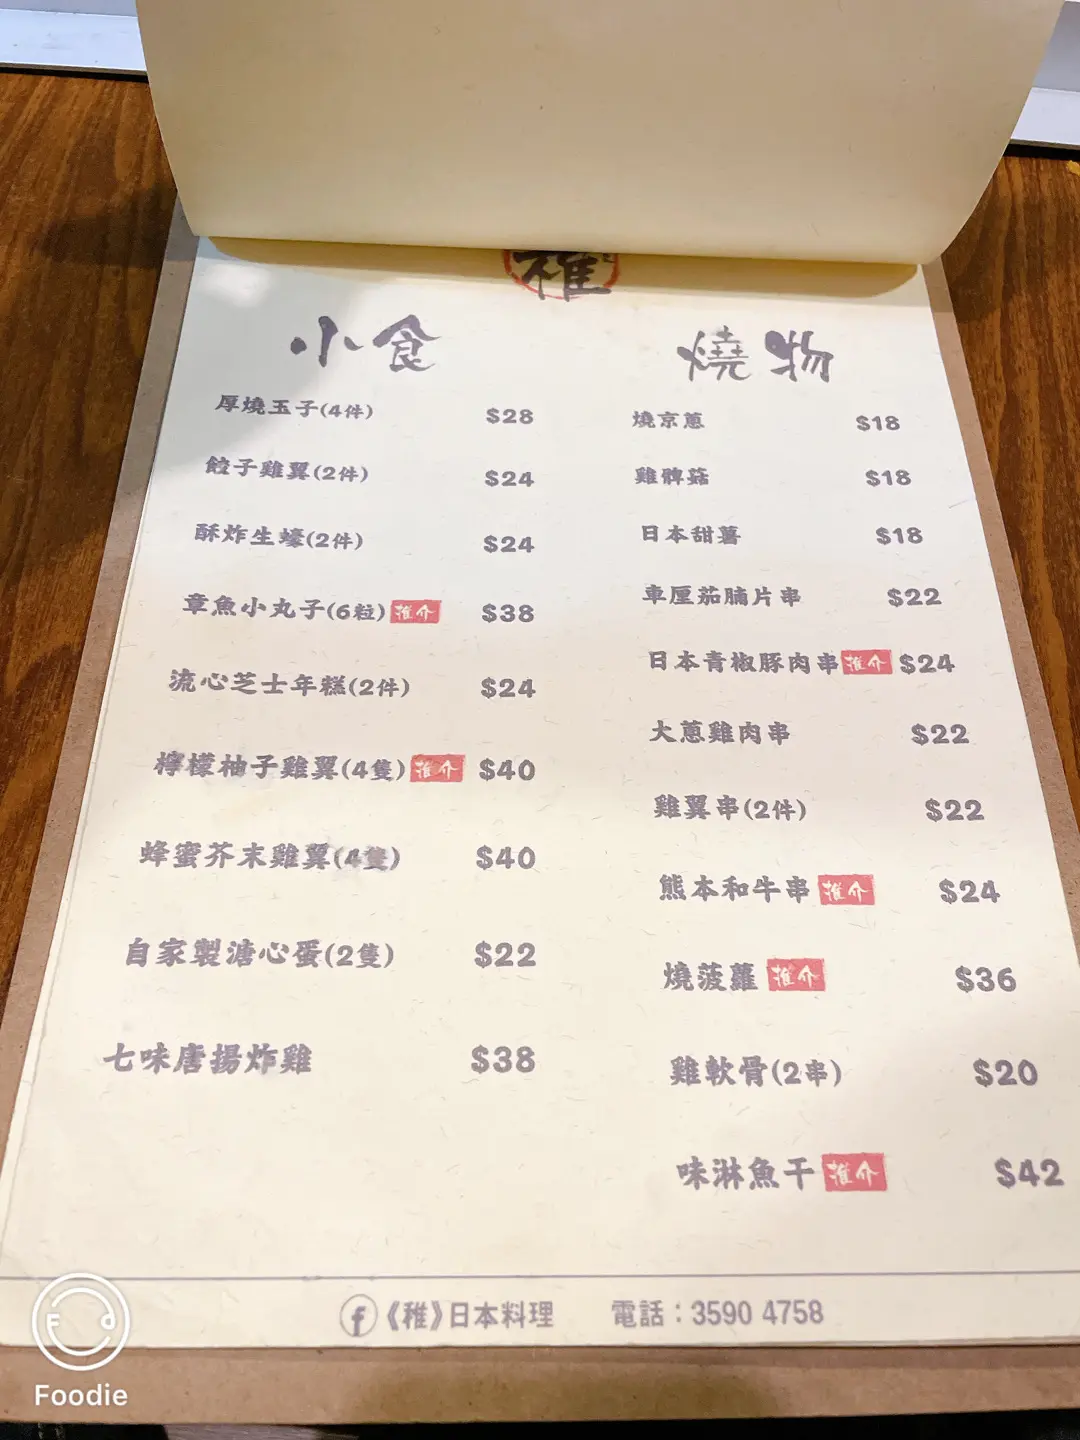 稚
小食
厚燒玉子(4件) $28
餃子雞翼(2件) $24
酥炸生蠔(2件) $24
章魚小丸子(6粒) 推介 $38
流心芝士年糕(2件) $24
檸檬柚子雞翼(4隻) 推介 $40
蜂蜜芥末雞翼(4隻) $40
自家製溏心蛋(2隻) $22
七味唐揚炸雞 $38
燒物
燒京蔥 $18
雞髀菇 $18
日本甜薯 $18
車厘茄腩片串 $22
日本青椒豚肉串 推介 $24
大蔥雞肉串 $22
雞翼串(2件) $22
熊本和牛串 推介 $24
燒菠蘿 推介 $36
雞軟骨(2串) $20
味淋魚干 推介 $42
f《稚》日本料理 電話：3590 4758
F d
Foodie